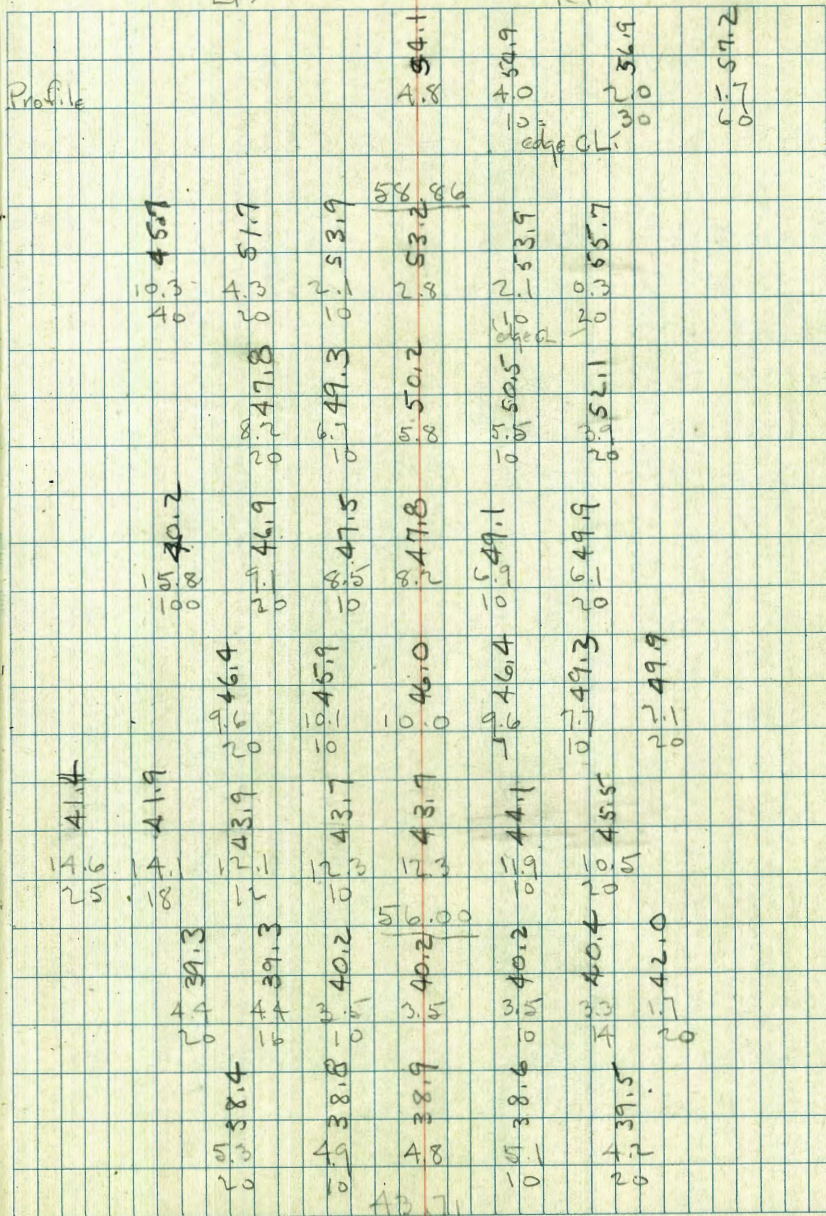 54.1 54.9 56.9 57.2
Profile 4.8 4.0 2.0 1.7
10= 30 60
edge CL.
58.86
45.7 51.7 53.9 53.2 53.9 55.7
10.3 4.3 2.1 2.8 2.1 0.3
40 20 10 10 20
edge CL
47.8 49.3 50.2 50.5 52.1
8.2 5.8 5.5 3.9
20 10 10 20
40.2 46.9 47.5 47.8 49.1 49.9
15.8 9.1 8.5 8.2 6.9 6.1
100 20 10 10 20
46.4 45.9 46.0 46.4 49.3 49.9
9.6 10.1 10.0 9.6 7.1
20 10 10 20
41.4 41.9 43.9 43.7 43.7 44.1 45.5
14.6 14.1 12.1 12.3 12.3 11.9 10.5
25 18 12 10 10 20
56.00
39.3 39.3 40.2 40.2 40.2 40.4 42.0
4.4 4.4 3.5 3.5 3.5 3.3 1.7
20 16 10 10 14 20
38.4 38.8 38.9 38.6 39.5
5.3 4.9 4.8 5.1 4.2
20 10 10 20
43.71